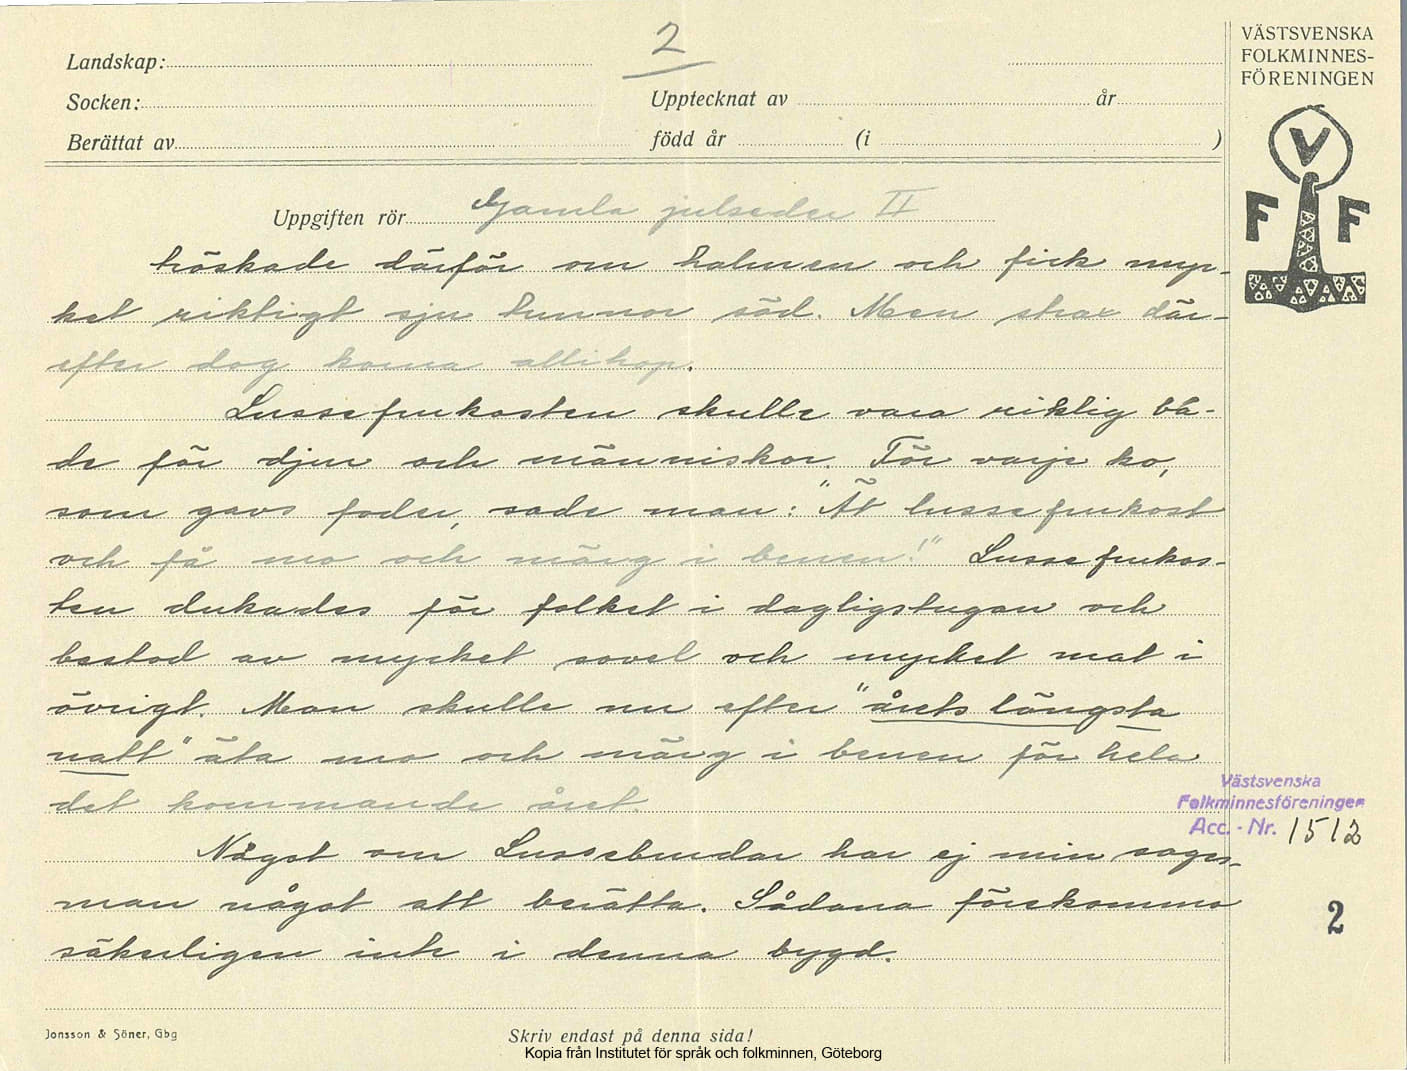 2
Landskap:
Socken:
Upptecknat av år
Berättat av född år (i )
VÄSTSVENSKA
FOLKMINNES-
FÖRENINGEN
V
F F
Uppgiften rör Gamla julseder II
tröskade därför om halmen och fick myc-
ket riktigt sju tunnor säd. Men strax där-
efter dog korna allihop.
Lussefrukosten skulle vara riklig bå-
de för djur och människor. För varje ko,
som gavs foder, sade man: "Ät lussefrukost
och få mo och märg i benen!" Lussefrukos-
ten dukades för folket i dagligstugan och
bestod av mycket sovel och mycket mat i
övrigt. Man skulle nu efter "årets längsta
natt" äta mo och märg i benen för hela
det kommande året
Något om Lussebrudar har ej min sages-
man något att berätta. Sådana förekommo
säkerligen inte i denna bygd.
Västsvenska
Folkminnesföreningen
Acc. - Nr. 1512
2
Jonsson & Söner, Gbg
Skriv endast på denna sida!
Kopia från Institutet för språk och folkminnen, Göteborg